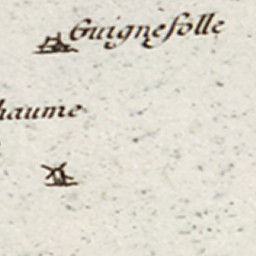 Guigneſolle
haume